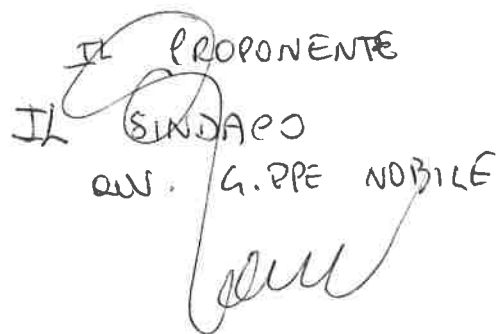 IL PROPONENTE
IL SINDACO
avv. G.PPE NOBILE